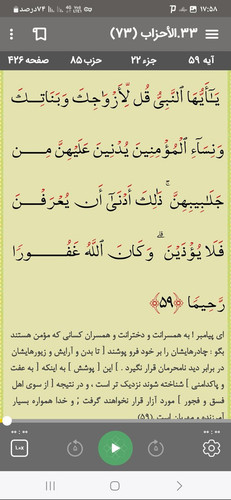 ۱۷:۵۸
۷۴درصد
۳۳.الأحزاب (۷۳)
آیه ۵۹ جزء ۲۲ حزب ۸۵ صفحه ۴۲۶
يَـٰٓأَيُّهَا ٱلنَّبِىُّ قُل لِّأَزْوَٰجِكَ وَبَنَاتِكَ
وَنِسَآءِ ٱلْمُؤْمِنِينَ يُدْنِينَ عَلَيْهِنَّ مِن
جَلَـٰبِيبِهِنَّ ۚ ذَٰلِكَ أَدْنَىٰٓ أَن يُعْرَفْنَ
فَلَا يُؤْذَيْنَ ۗ وَكَانَ ٱللَّهُ غَفُورًا
رَّحِيمًا ﴿۵۹﴾
ای پیامبر ! به همسرانت و دخترانت و همسران کسانی که مؤمن هستند
بگو : چادرهایشان را بر خود فرو پوشند [ تا بدن و آرایش و زیورهایشان
در برابر دید نامحرمان قرار نگیرد . ] این [ پوشش ] به اینکه [ به عفت
و پاکدامنی ] شناخته شوند نزدیک تر است ، و در نتیجه [ از سوی اهل
فسق و فجور ] مورد آزار قرار نخواهند گرفت ; و خدا همواره بسیار
آمرزنده و مهربان است. (۵۹)
۰۰:۰۰ ۰۰:۰۰
1.0x ۵ ۵